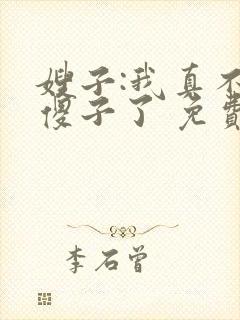 嫂子:我真不
傻子了 免費
李石曾